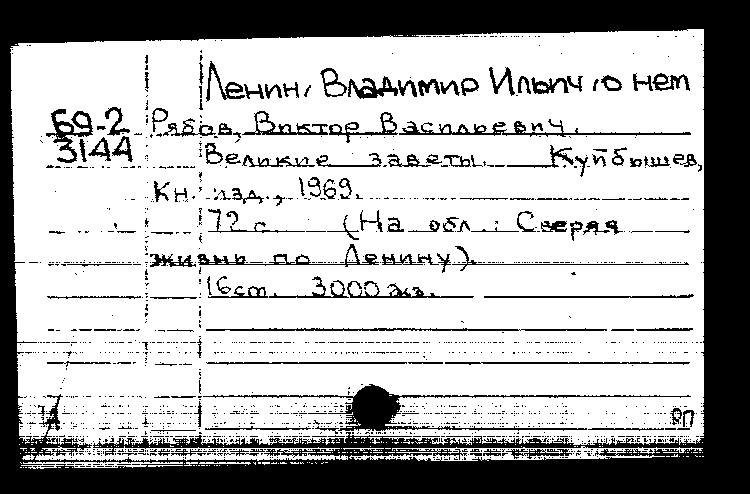 Ленин, Владимир Ильич, о нем
Б9-2 Рябов, Виктор Васильевич.
3144 Великие заветы. Куйбышев,
Кн. изд., 1969.
72 с. (На обл.: Сверяя
жизнь по Ленину).
16 см. 3000 экз.